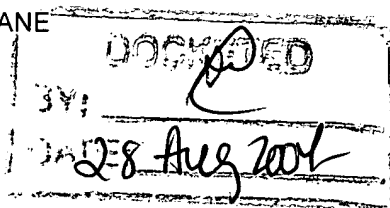 ANE
DOCKETED
BY:
DATE 28 Aug